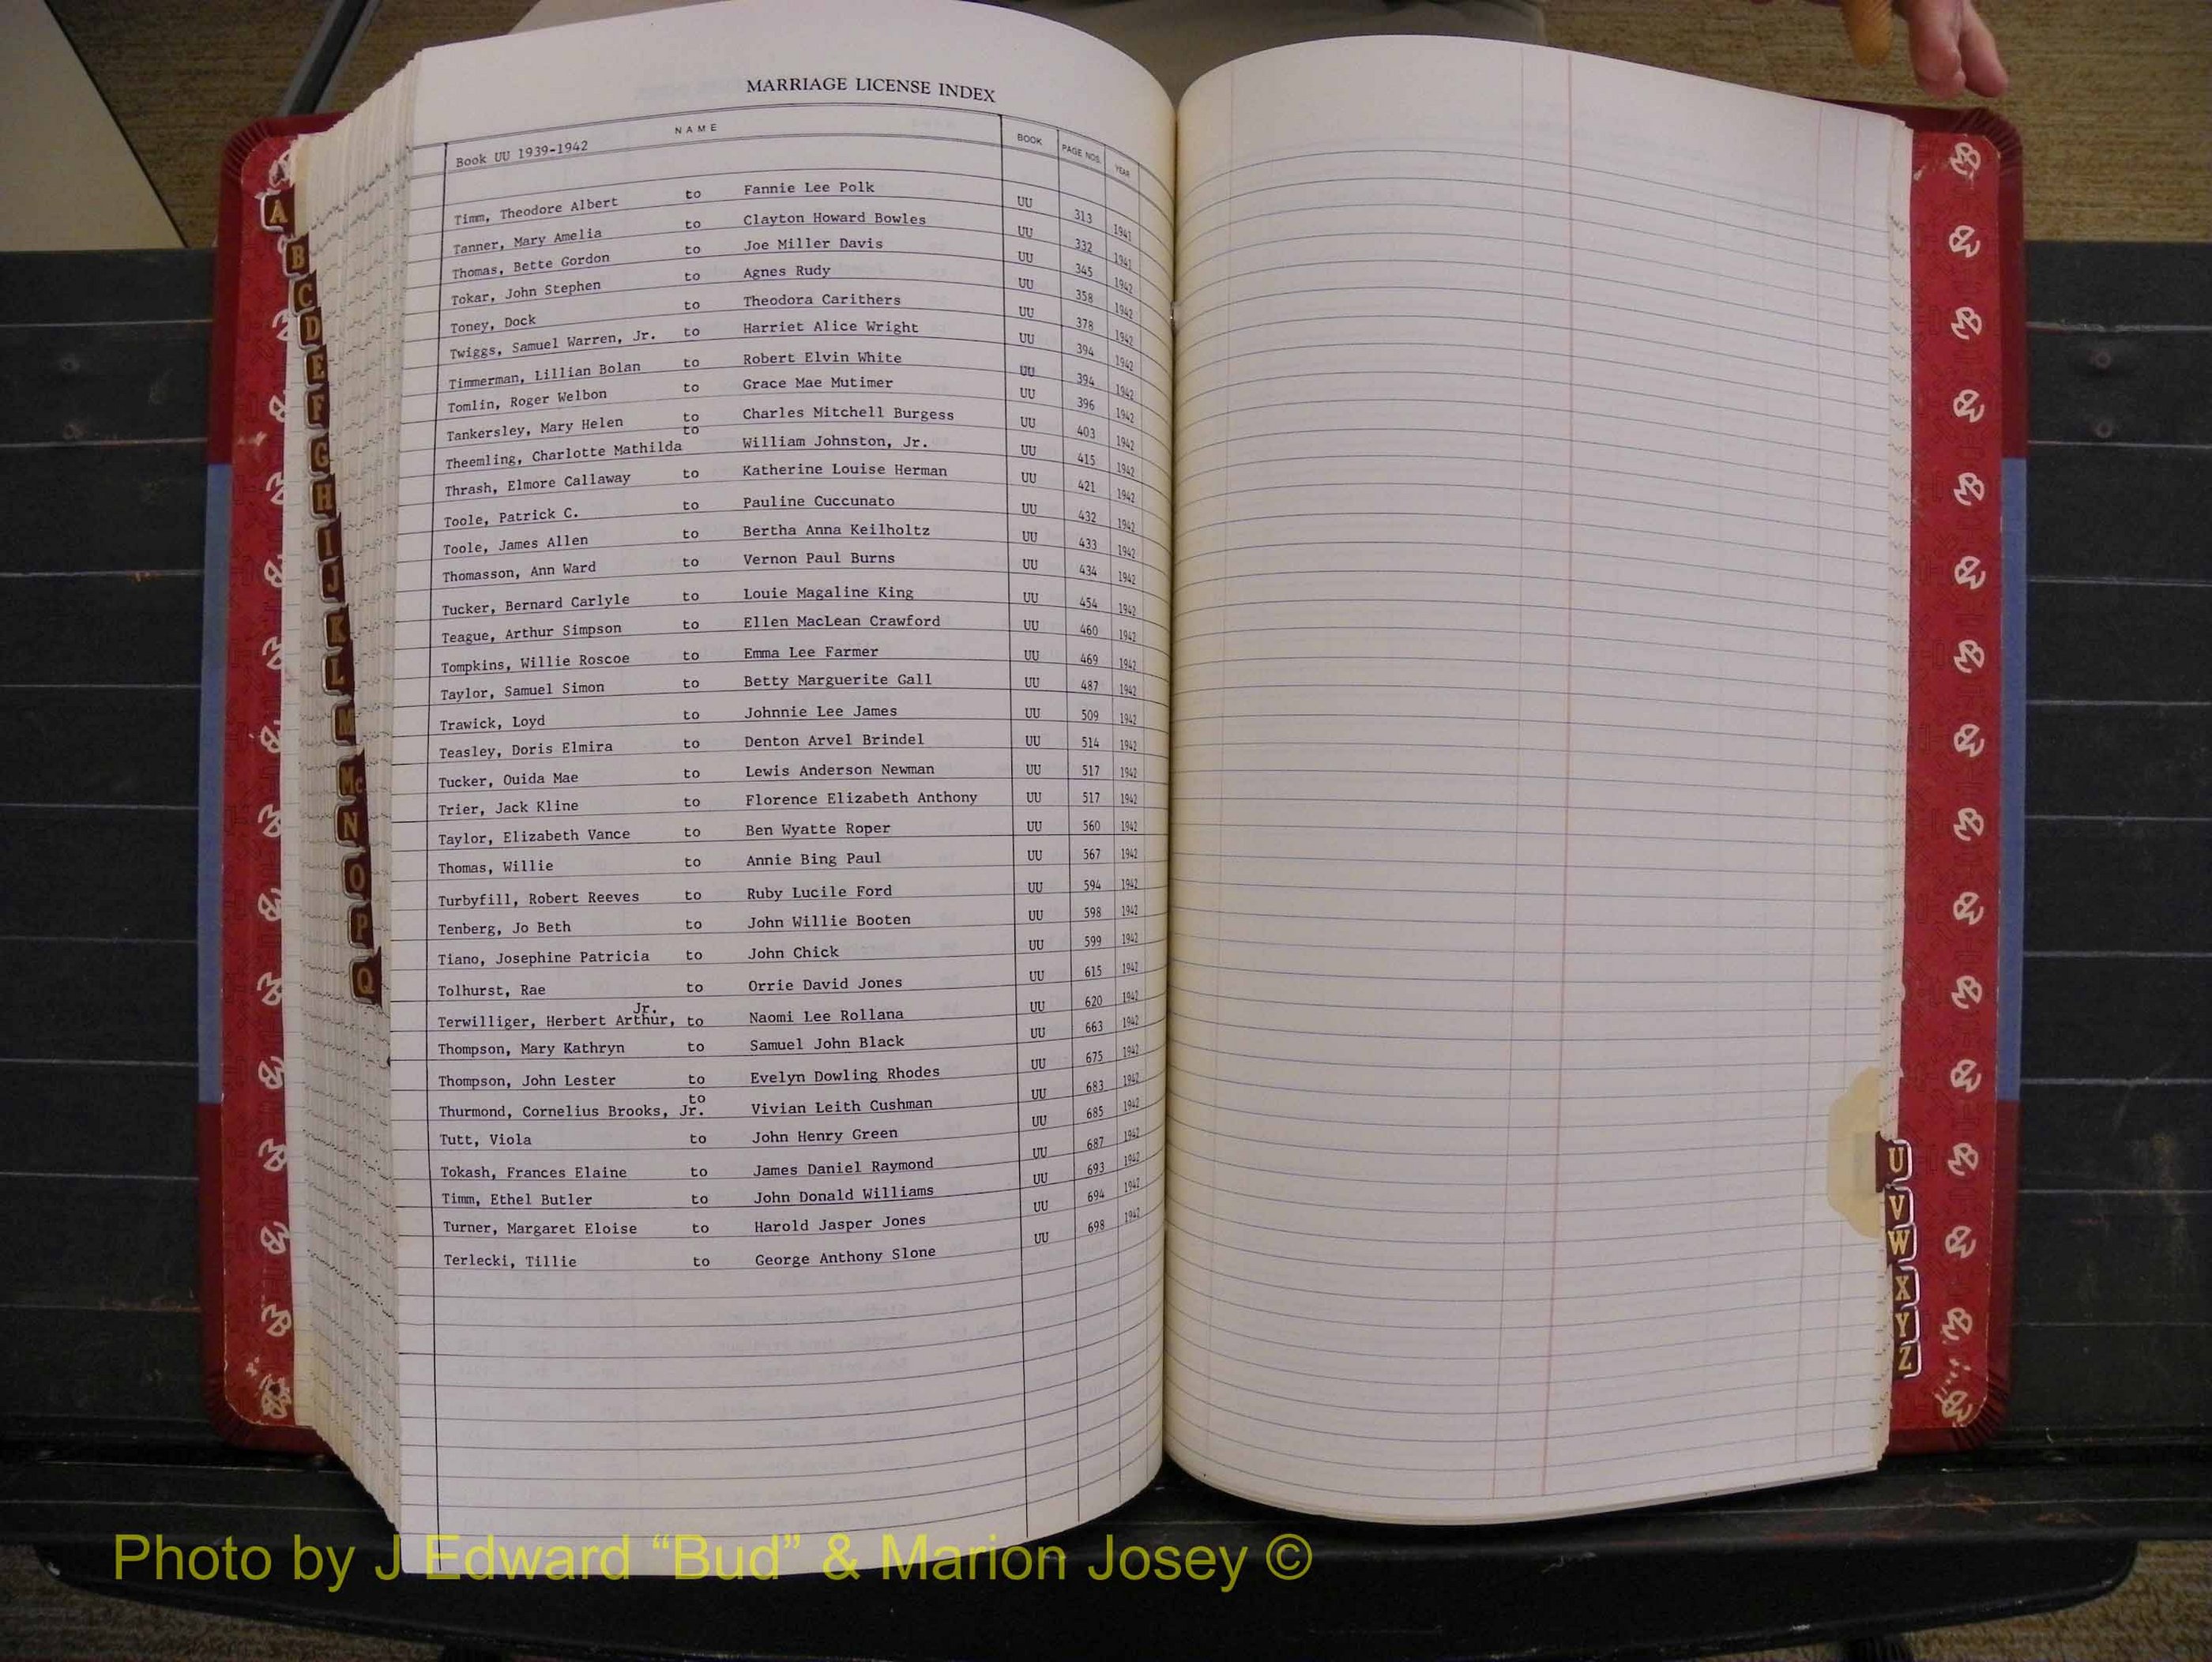 MARRIAGE LICENSE INDEX
NAME BOOK PAGE NOS. YEAR
Book UU 1939-1942
Timm, Theodore Albert to Fannie Lee Polk UU 313 1941
Tanner, Mary Amelia to Clayton Howard Bowles UU 332 1941
Thomas, Bette Gordon to Joe Miller Davis UU 345 1942
Tokar, John Stephen to Agnes Rudy UU 358 1942
Toney, Dock to Theodora Carithers UU 378 1942
Twiggs, Samuel Warren, Jr. to Harriet Alice Wright UU 394 1942
Timmerman, Lillian Bolan to Robert Elvin White UU 394 1942
Tomlin, Roger Welbon to Grace Mae Mutimer UU 396 1942
Tankersley, Mary Helen to Charles Mitchell Burgess UU 403 1942
Theemling, Charlotte Mathilda to William Johnston, Jr. UU 415 1942
Thrash, Elmore Callaway to Katherine Louise Herman UU 421 1942
Toole, Patrick C. to Pauline Cuccunato UU 432 1942
Toole, James Allen to Bertha Anna Keilholtz UU 433 1942
Thomasson, Ann Ward to Vernon Paul Burns UU 434 1942
Tucker, Bernard Carlyle to Louie Magaline King UU 454 1942
Teague, Arthur Simpson to Ellen MacLean Crawford UU 460 1942
Tompkins, Willie Roscoe to Emma Lee Farmer UU 469 1942
Taylor, Samuel Simon to Betty Marguerite Gall UU 487 1942
Trawick, Loyd to Johnnie Lee James UU 509 1942
Teasley, Doris Elmira to Denton Arvel Brindel UU 514 1942
Tucker, Ouida Mae to Lewis Anderson Newman UU 517 1942
Trier, Jack Kline to Florence Elizabeth Anthony UU 517 1942
Taylor, Elizabeth Vance to Ben Wyatte Roper UU 560 1942
Thomas, Willie to Annie Bing Paul UU 567 1942
Turbyfill, Robert Reeves to Ruby Lucile Ford UU 594 1942
Tenberg, Jo Beth to John Willie Booten UU 598 1942
Tiano, Josephine Patricia to John Chick UU 599 1942
Tolhurst, Rae to Orrie David Jones UU 615 1942
Terwilliger, Herbert Arthur, Jr. to Naomi Lee Rollana UU 620 1942
Thompson, Mary Kathryn to Samuel John Black UU 663 1942
Thompson, John Lester to Evelyn Dowling Rhodes UU 675 1942
Thurmond, Cornelius Brooks, Jr. to Vivian Leith Cushman UU 683 1942
Tutt, Viola to John Henry Green UU 685 1942
Tokash, Frances Elaine to James Daniel Raymond UU 687 1942
Timm, Ethel Butler to John Donald Williams UU 693 1942
Turner, Margaret Eloise to Harold Jasper Jones UU 694 1942
Terlecki, Tillie to George Anthony Slone UU 698 1942
A
B
C
D
E
F
G
H
I
J
K
L
M
Mc
N
O
P
Q
U
V
W
X
Y
Z
Photo by J Edward “Bud” & Marion Josey ©